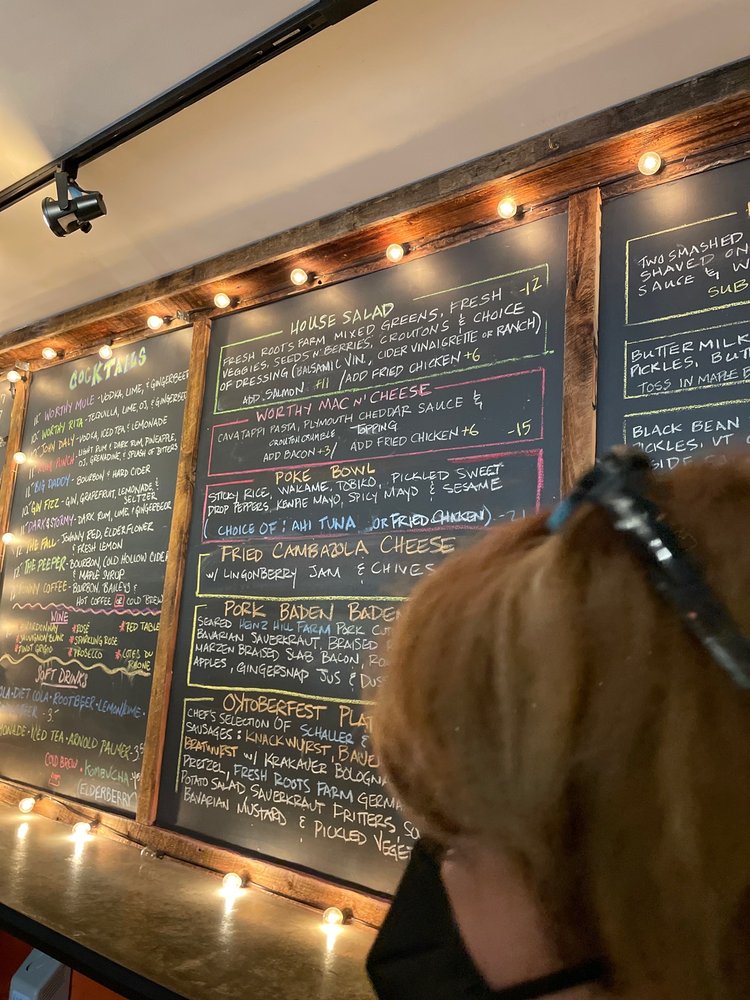 COCKTAILS
WORTHY MULE - VODKA, LIME, & GINGERBEER
WORTHY RITA - TEQUILLA, LIME, OJ, & GINGERBEER
JOHN DALY - VODKA, ICED TEA & LEMONADE
PUNCH - LIGHT RUM & DARK RUM, PINEAPPLE,
OJ, GRENADINE, & SPLASH OF BITTERS
BIG DADDY - BOURBON & HARD CIDER
GIN FIZZ - GIN, GRAPEFRUIT, LEMONADE, &
SELTZER
DARK & STORMY - DARK RUM, LIME & GINGERBEER
THE FALL - JOHNNY RED, ELDERFLOWER
& FRESH LEMON
THE PEEPER - BOURBON, COLD HOLLOW CIDER
& MAPLE SYRUP
COFFEE - BOURBON, BAILEYS &
HOT COFFEE OR COLD BREW
WINE
CHARDONNAY * ROSÉ * RED TABLE
SAUVIGNON BLANC * SPARKLING ROSÉ
PINOT GRIGIO * PROSECCO * COTES DU
RHONE
SOFT DRINKS
COLA - DIET COLA - ROOTBEER - LEMON/LIME -
BEER - 3.
LEMONADE - ICED TEA - ARNOLD PALMER - 3.5
COLD BREW KOMBUCHA
(ELDERBERRY)
HOUSE SALAD -12
FRESH ROOTS FARM MIXED GREENS, FRESH
VEGGIES, SEEDS N' BERRIES, CROUTONS & CHOICE
OF DRESSING (BALSAMIC VIN, CIDER VINAIGRETTE OR RANCH)
ADD SALMON +11 / ADD FRIED CHICKEN +6
WORTHY MAC N' CHEESE
CAVATAPPI PASTA, PLYMOUTH CHEDDAR SAUCE &
CROUTON CRUMBLE TOPPING -15
ADD BACON +3/ ADD FRIED CHICKEN +6
POKE BOWL
STICKY RICE, WAKAME, TOBIKO, PICKLED SWEET
DROP PEPPERS, KEWPIE MAYO, SPICY MAYO & SESAME
(CHOICE OF: AHI TUNA OR FRIED CHICKEN)
FRIED CAMBAZOLA CHEESE
W/ LINGONBERRY JAM & CHIVES
PORK BADEN BADEN
SEARED HENZ HILL FARM PORK
BAVARIAN SAUERKRAUT, BRAISED
MARZEN BRAISED SLAB BACON,
APPLES, GINGERSNAP JUS &
OKTOBERFEST
CHEF'S SELECTION OF SCHALLER &
SAUSAGES: KNACKWURST,
BRATWURST W/ KRAKAUER BOLOGNA
PRETZEL, FRESH ROOTS FARM
POTATO SALAD SAUERKRAUT FRITTERS,
BAVARIAN MUSTARD & PICKLED
TWO SMASHED
SHAVED
SAUCE &
SUB
BUTTERMILK
PICKLES,
TOSS IN MAPLE
BLACK BEAN
PICKLES, VT